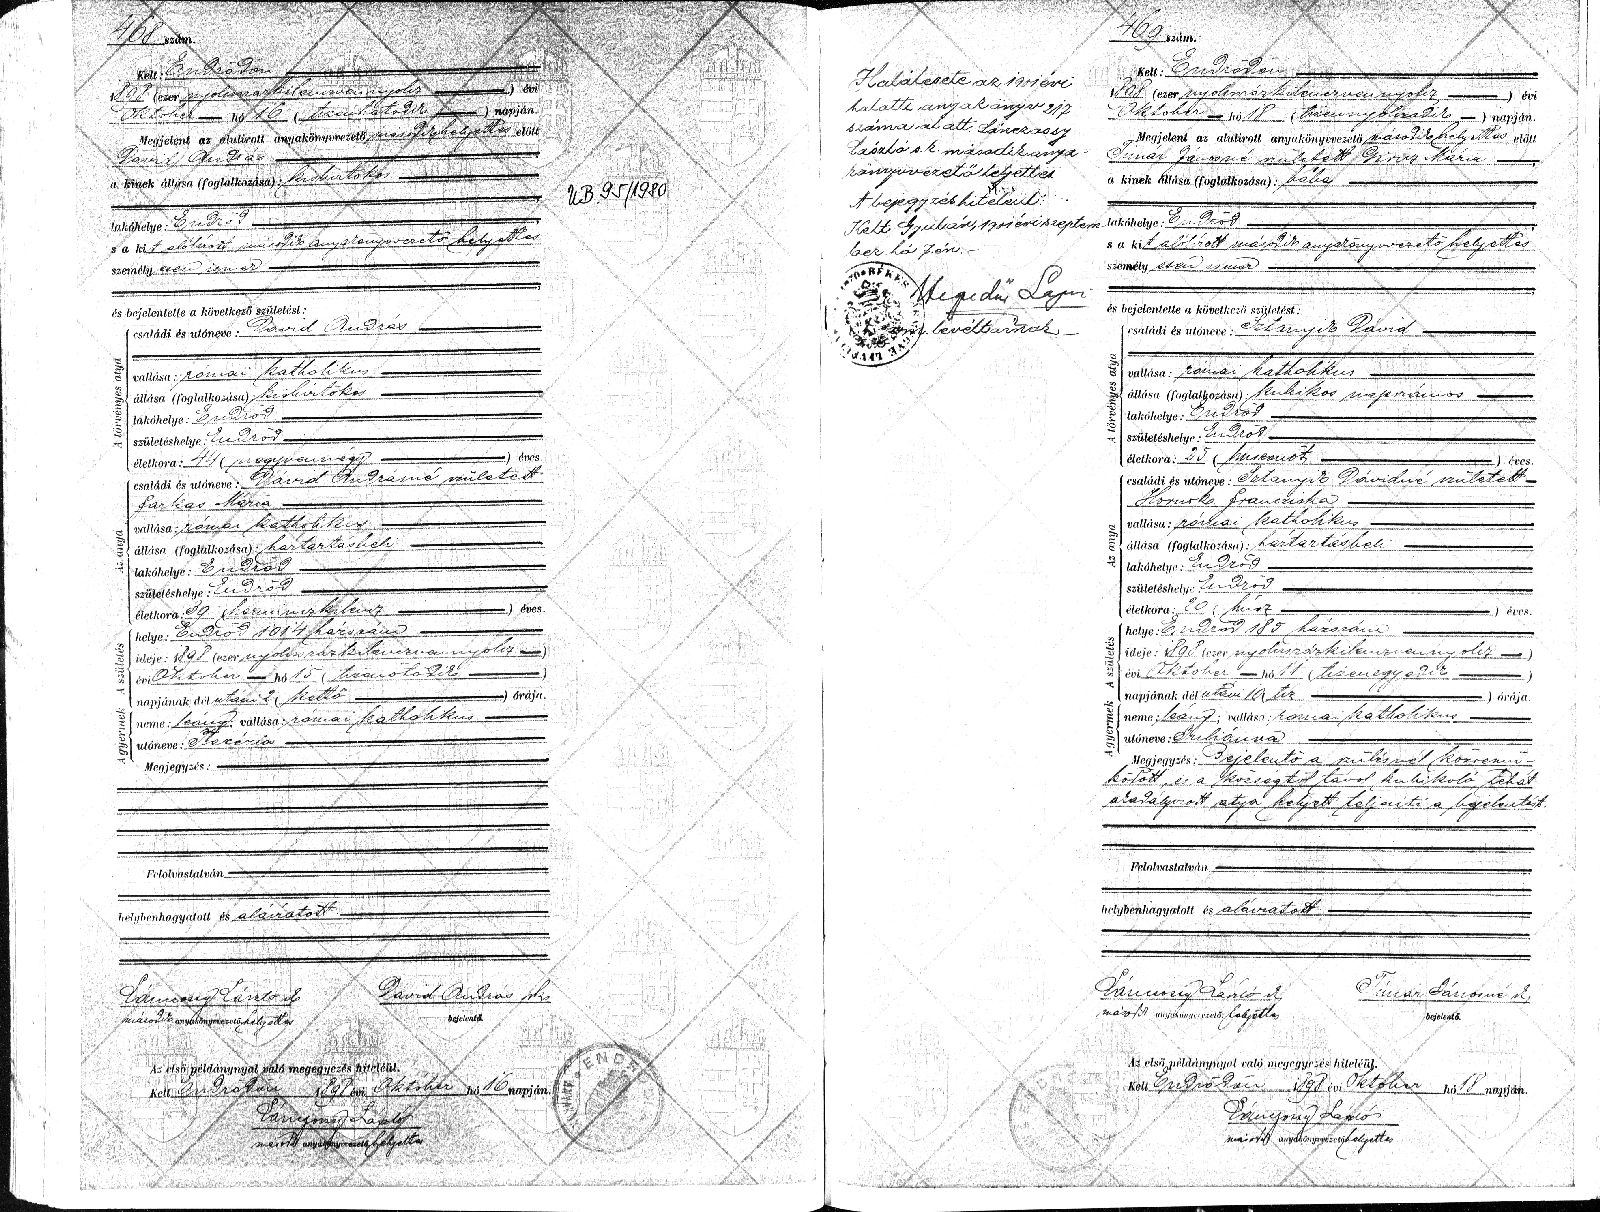 468 szám.
Kelt: Endrődön
1898 (ezer nyolcszázkilencvennyolcz ) évi
Október hó 16 (tizenhatodik ) napján.
Megjelent az alulirott anyakönyvvezető második helyettes előtt
Dávid András
a kinek állása (foglalkozása): kisbirtokos
lakóhelye: Endrőd
s a kit alólirott második anyakönyvvezető helyettes
személy esen ismer
és bejelentette a következő születést:
A törvényes atya
családi és utóneve: Dávid András
vallása: római katholikus
állása (foglalkozása) kisbirtokos
lakóhelye: Endrőd
születéshelye: Endrőd
életkora: 44 (negyvennégy ) éves.
Az anya
családi és utóneve: Dávid Andrásné született
Farkas Mária
vallása: római katholikus
állása (foglalkozása): háztartásbeli
lakóhelye: Endrőd
születéshelye: Endrőd
életkora: 39 (harminczkilencz ) éves.
A születés
helye: Endrőd 1014 házszám
ideje: 1898 (ezer nyolczszázkilenczvennyolcz )
évi Október hó 15 (tizenötödik )
napjának dél utáni 2 (kettő ) órája.
A gyermek
neme: leány vallása: római katholikus
utóneve: Terézia
Megjegyzés:
Felolvastatván
helybenhagyatott és aláíratott
László
második anyakönyvvezető helyettes
Dávid András
bejelentő.
Az első példánynyal való megegyezés hiteléül.
Kelt Endrődön 1898 évi Október hó 16 napján.
László
másod anyakönyvvezető helyettes
ENDR
UB. 95/1980
Halálesete az 1901 évi
halotti anyakönyv 217
száma alatt. Lánczossy
László s.k. második anya-
könyvvezető helyettes
A bejegyzés hiteléül:
Kelt Gyulán, 1901 évi szeptem
ber hó 7én.
Hegedűs Lajos
levéltárnok
BÉKÉS
469 szám.
Kelt: Endrődön
1898 (ezer nyolczszázkilenczvennyolcz ) évi
Október hó 18 (tizennyolczadik ) napján.
Megjelent az alulirott anyakönyvvezető második helyettes előtt
Tímár Jánosné született Mária
a kinek állása (foglalkozása): bába
lakóhelye: Endrőd
s a kit alólírott második anyakönyvvezető helyettes
személy esen ismer
és bejelentette a következő születést:
A törvényes atya
családi és utóneve: Sztanyik Dávid
vallása: római katholikus
állása (foglalkozása): kubikos napszámos
lakóhelye: Endrőd
születéshelye: Endrőd
életkora: 25 (huszonöt ) éves.
Az anya
családi és utóneve: Sztanyik Dávidné született
Hornok Franciska
vallása: római katholikus
állása (foglalkozása): háztartásbeli
lakóhelye: Endrőd
születéshelye: Endrőd
életkora: 20 (húsz ) éves.
A születés
helye: Endrőd 185 házszám
ideje: 1898 (ezer nyolczszázkilenczvennyolcz )
évi Október hó 11 (tizenegyedik )
napjának dél utáni 10 (tíz ) órája.
A gyermek
neme: leány; vallása: római katholikus
utóneve: Juliánna
Megjegyzés: Bejelentő a szülésnél közremű-
ködött, és a községtől távol kubikoló tehát
akadályozott atya helyett teljesíti a bejelentést.
Felolvastatván
helybenhagyatott és aláíratott
László
másod anyakönyvvezető helyettes
Tímár Jánosné
bejelentő.
Az első példánynyal való megegyezés hiteléül.
Kelt Endrődön 1898 évi Október hó 18 napján.
László
másod anyakönyvvezető helyettes